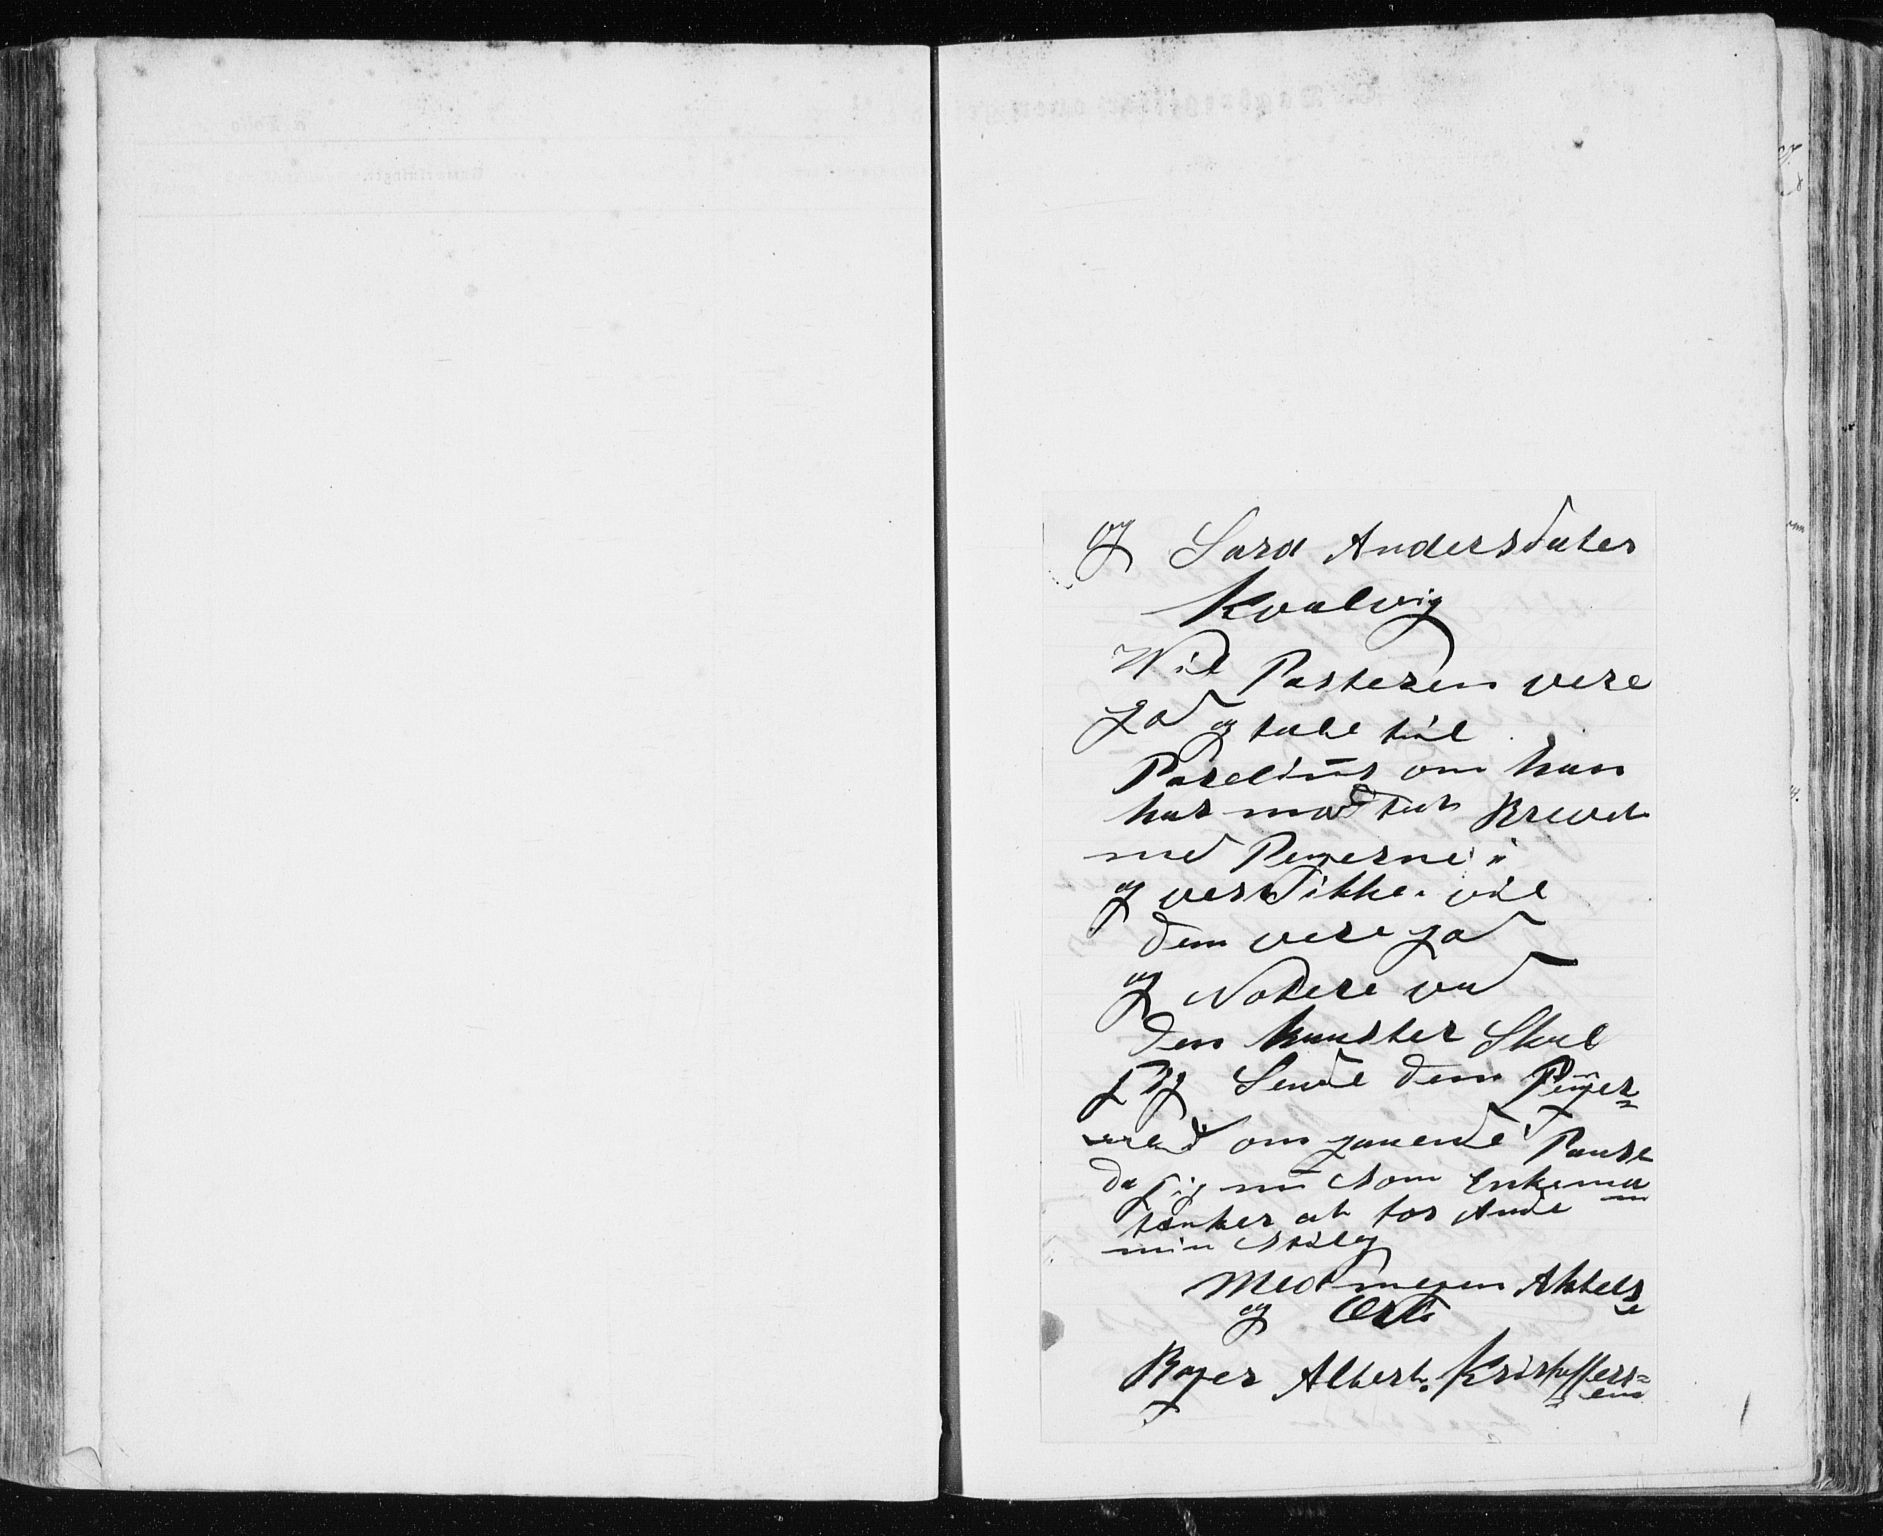 og Sara Andersdater
Kvalvig
Wil Pasteren vere
god og tale til
Parelius om han
har modtat Brevet
med Pengerne i
og vers ikke. vil
dem vere god
og Notere vad
den kunster Skal
jeg Sende dem Penger
med om gaaende Paase
da jeg nu som Enkeman
tænker at for Ande
min stily
Med megen Aktelse
og
Roger Albert. Kristoffersen